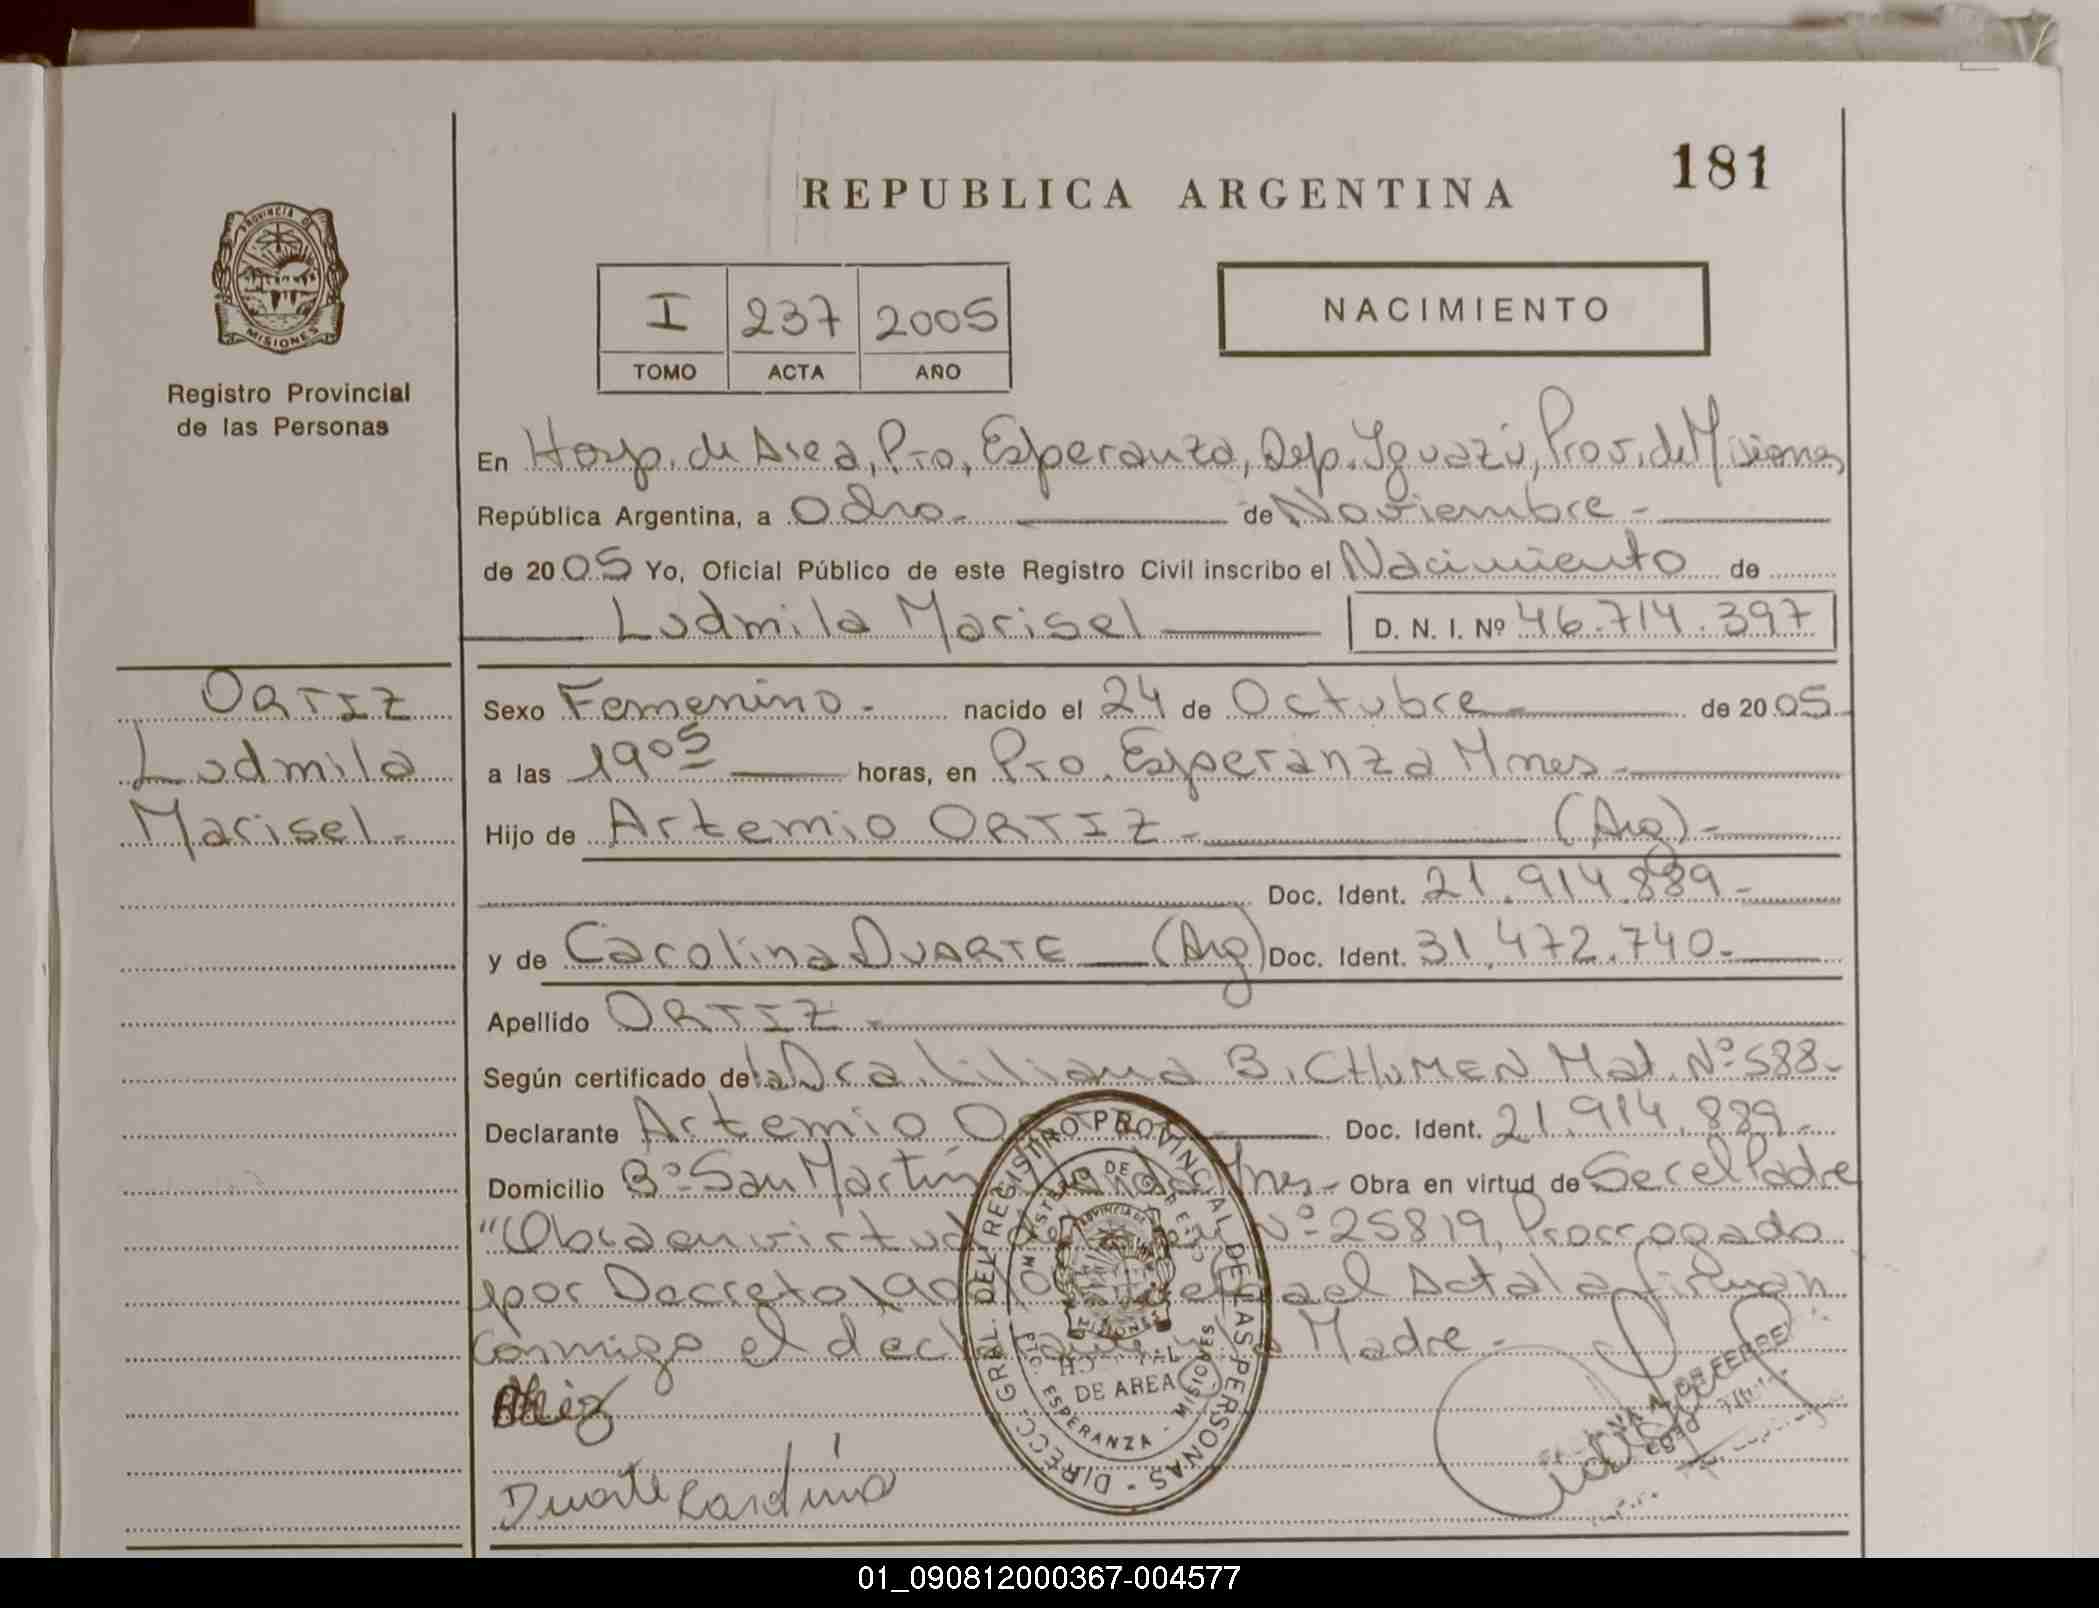 181
REPUBLICA ARGENTINA
PROVINCIA DE
MISIONES
Registro Provincial
de las Personas
I 237 2005
TOMO ACTA AÑO
NACIMIENTO
En Hosp. de Area, Pto, Esperanza, Dep. Iguazú, Prov. de Misiones
República Argentina, a Ocho.- de Noviembre-
de 2005 Yo, Oficial Público de este Registro Civil inscribo el Nacimiento de
Ludmila Marisel D. N. I. Nº 46.714.397
ORTIZ
Ludmila
Marisel-
Sexo Femenino- nacido el 24 de Octubre de 2005
a las 19 05 horas, en Pto. Esperanza Mnes-
Hijo de Artemio ORTIZ- (Arg)-
Doc. Ident. 21.914.889-
y de Carolina DUARTE (Arg) Doc. Ident. 31.472.740-
Apellido ORTIZ-
Según certificado de la Dra. Liliana B. CHUMEN Mat. Nº 588-
Declarante Artemio Doc. Ident. 21.914.889-
Domicilio Bº San Martín Mnes- Obra en virtud de Ser el Padre
"Obra en virtud Nº 25819, Prorrogado
por Decreto el Acta la firman
conmigo el Madre-
Duarte Carolina
DIRECC. GRAL. DEL REGISTRO PROVINCIAL DE LAS PERSONAS
PROVINCIA DE
MISIONES
DE AREA
PTO. ESPERANZA - MISIONES
DE FERREY
01_090812000367-004577